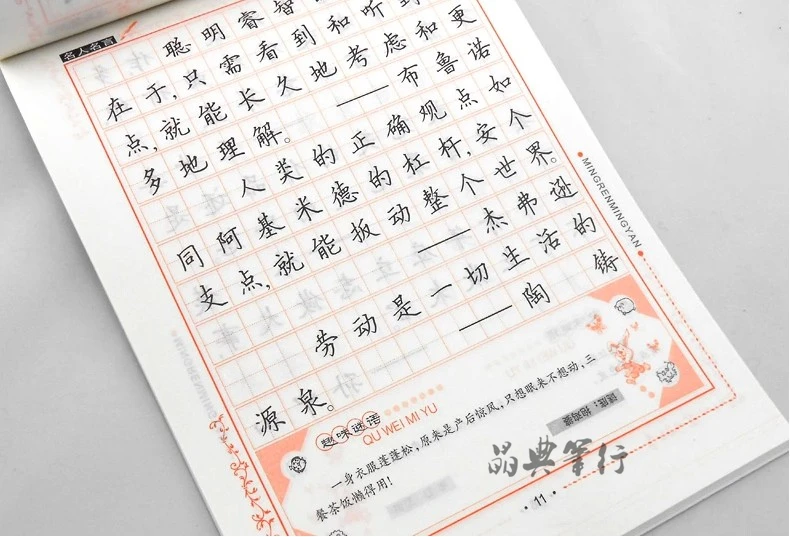 名人名言
聪明睿智
在于,只需看到和听到
点,就能长久地考虑和更
多地理解。——布鲁诺
人类的正确观点如
同阿基米德的杠杆,安个
支点,就能扳动整个世界。
——杰弗逊
劳动是一切生活的
源泉。——陶铸
MINGRENMINGYAN
趣味谜语
QU WEI MI YU
一身衣服蓬蓬松,原来是产后惊风,只想眠来不想动,三
餐茶饭懒得用!
谜底:
晶典筆行
·11·